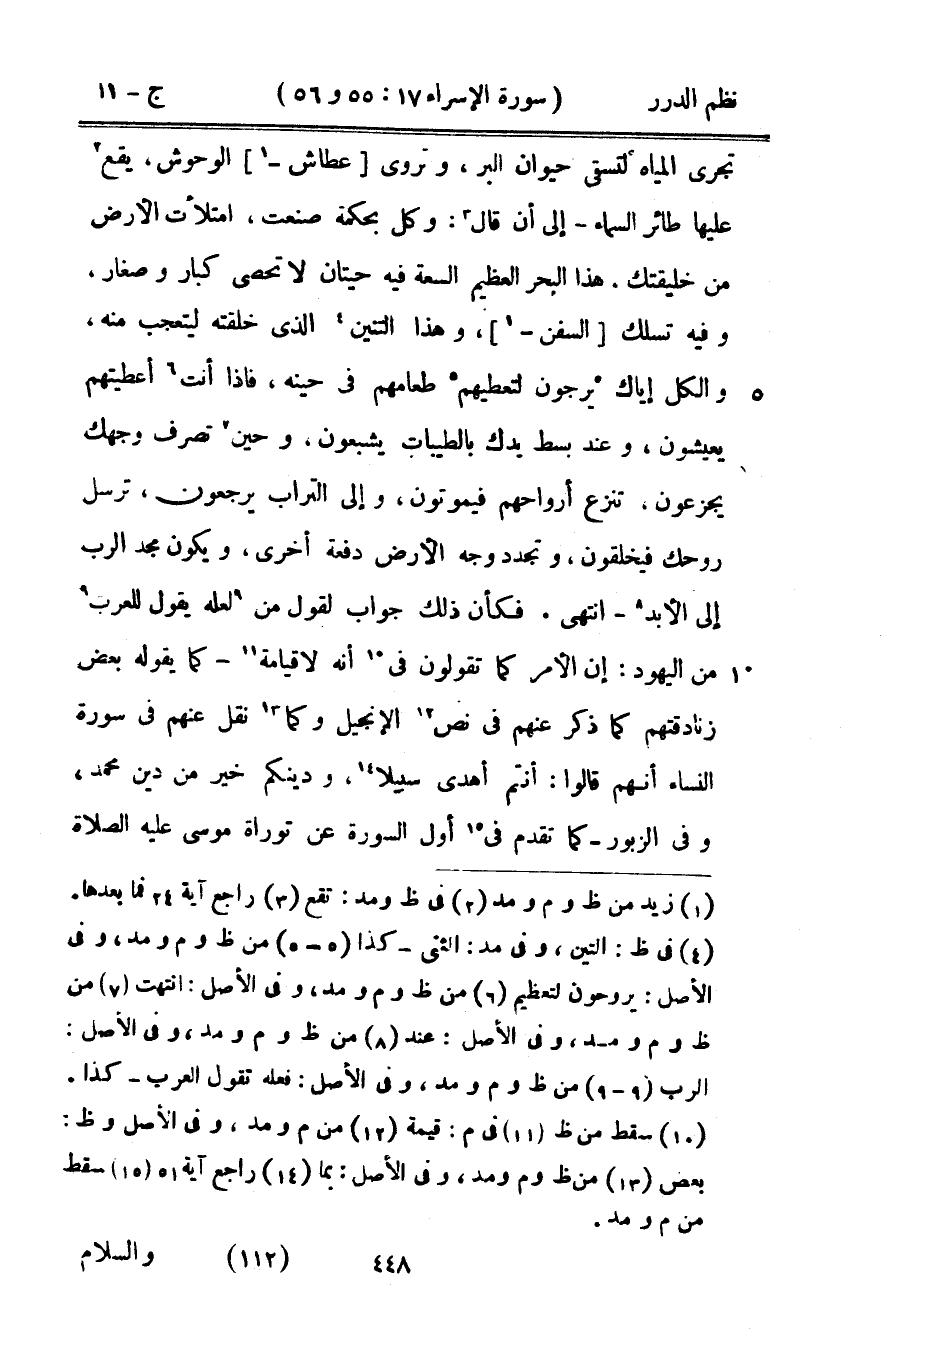 نظم الدرر ( سورة الإسراء ١٧ : ٥٥ و ٥٦ ) ج - ١١
تجرى المياه لتسقى حيوان البر ، و تروى [ عطاش -١ ] الوحوش ، يقع٢
عليها طائر السماء - إلى أن قال٣ : و كل بحكمة صنعت ، امتلأت الأرض
من خليقتك . هذا البحر العظيم السعة فيه حيتان لا تحصى كبار و صغار ،
و فيه تسلك [ السفن -١ ] ، و هذا التنين٤ الذى خلقته ليتعجب منه ،
٥ و الكل إياك ٥يرجون لتعطيهم٥ طعامهم فى حينه ، فاذا أنت٦ أعطيتهم
يعيشون ، و عند بسط يدك بالطيبات يشبعون ، و حين٧ تصرف وجهك
يجزعون ، تنزع أرواحهم فيموتون ، و إلى التراب يرجعون ، ترسل
روحك فيخلقون ، و تجدد وجه الأرض دفعة أخرى ، و يكون مجد الرب
إلى الأبد٨ - انتهى . فكأن ذلك جواب لقول من ٩لعله يقول للعرب٩
١٠ من اليهود : إن الأمر كما تقولون فى١٠ أنه لا قيامة١١ - كما يقوله بعض
زنادقتهم كما ذكر عنهم فى نص١٢ الإنجيل و كما١٣ نقل عنهم فى سورة
النساء أنهم قالوا : أنتم أهدى سبيلا١٤ ، و دينكم خير من دين محمد ،
و فى الزبور - كما تقدم فى١٥ أول السورة عن توراة موسى عليه الصلاة
(١) زيد من ظ و م و مد (٢) فى ظ ومد : تقع (٣) راجع آية ٢٤ فما بعدها .
(٤) فى ظ : التين ، و فى مد : الثنى - كذا (٥-٥) من ظ و م و مد ، و فى
الأصل : يروحون لتعظيم (٦) من ظ و م و مد ، و فى الأصل : انتهت (٧) من
ظ و م و مد ، و فى الأصل : عند (٨) من ظ و م و مد ، و فى الأصل :
الرب (٩-٩) من ظ و م و مد ، و فى الأصل : فعله تقول العرب - كذا .
(١٠) سقط من ظ (١١) فى م : قيمة (١٢) من م و مد ، و فى الأصل و ظ :
بعض (١٣) من ظ و م ومد ، و فى الأصل : بما (١٤) راجع آية ٥١ (١٥) سقط
من م و مد .
٤٤٨ (١١٢) و السلام